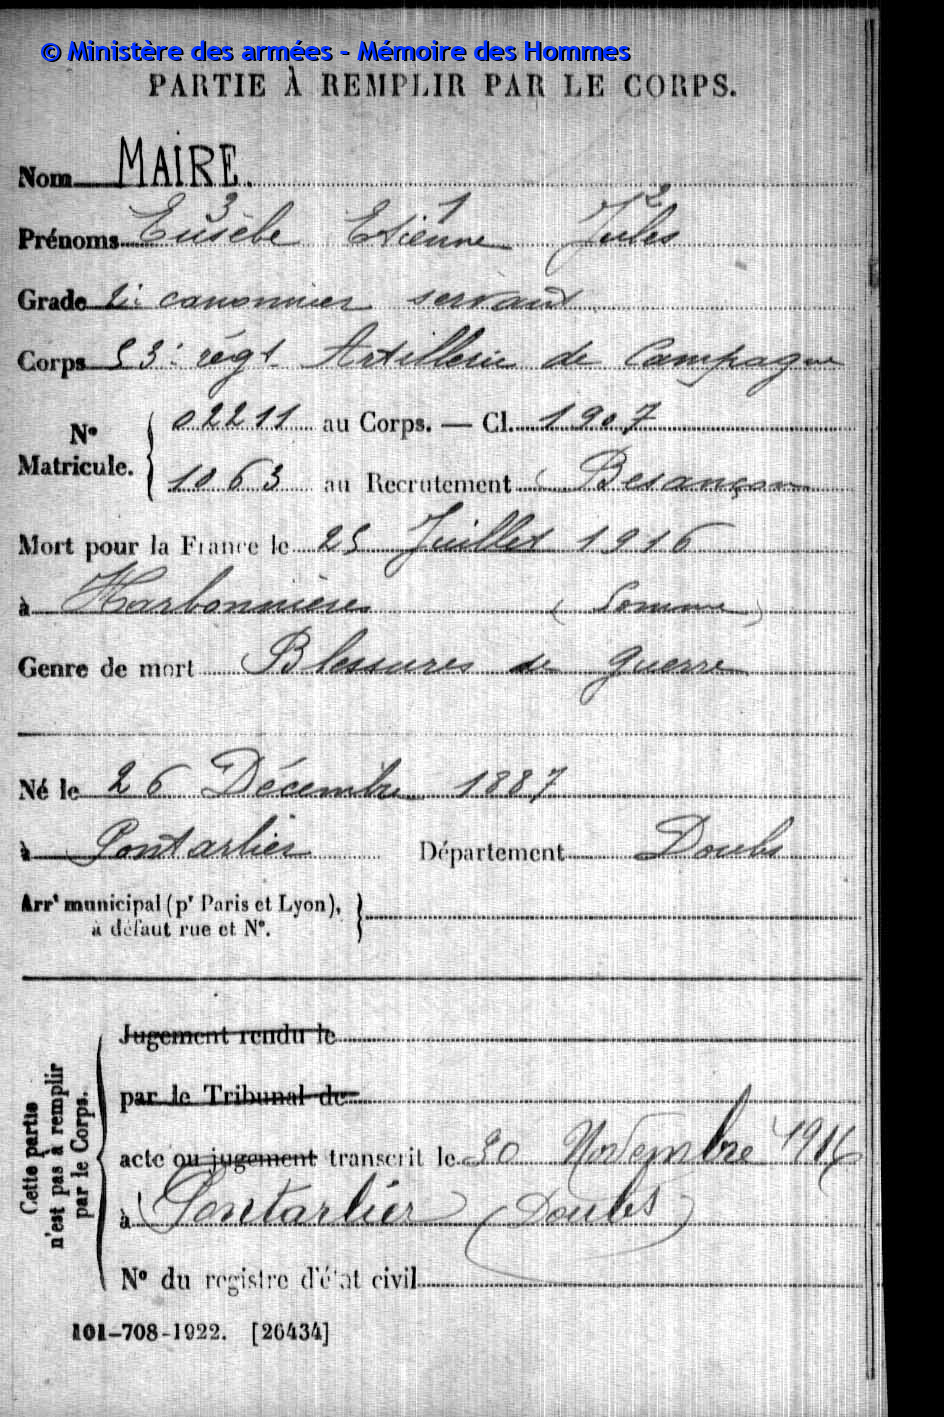 © Ministère des armées - Mémoire des Hommes
PARTIE À REMPLIR PAR LE CORPS.
Nom MAIRE.
3 1 2
Prénoms Eusèbe Etienne Jules
Grade 2e canonnier servant
Corps 53e régt Artillerie de Campagne
02211 au Corps. — Cl. 1907
N°
Matricule.
1063 au Recrutement Besançon
Mort pour la France le 25 Juillet 1916
à Harbonnières (Somme)
Genre de mort Blessures de guerre
Né le 26 Décembre 1887
à Pontarlier Département Doubs
Arrt municipal (pr Paris et Lyon),
à défaut rue et N°.
Cette partie
n'est pas à remplir
par le Corps.
Jugement rendu le
par le Tribunal de
acte ou jugement transcrit le 30 Novembre 1916
à Pontarlier (Doubs)
N° du registre d'état civil
101-708-1922. [26434]